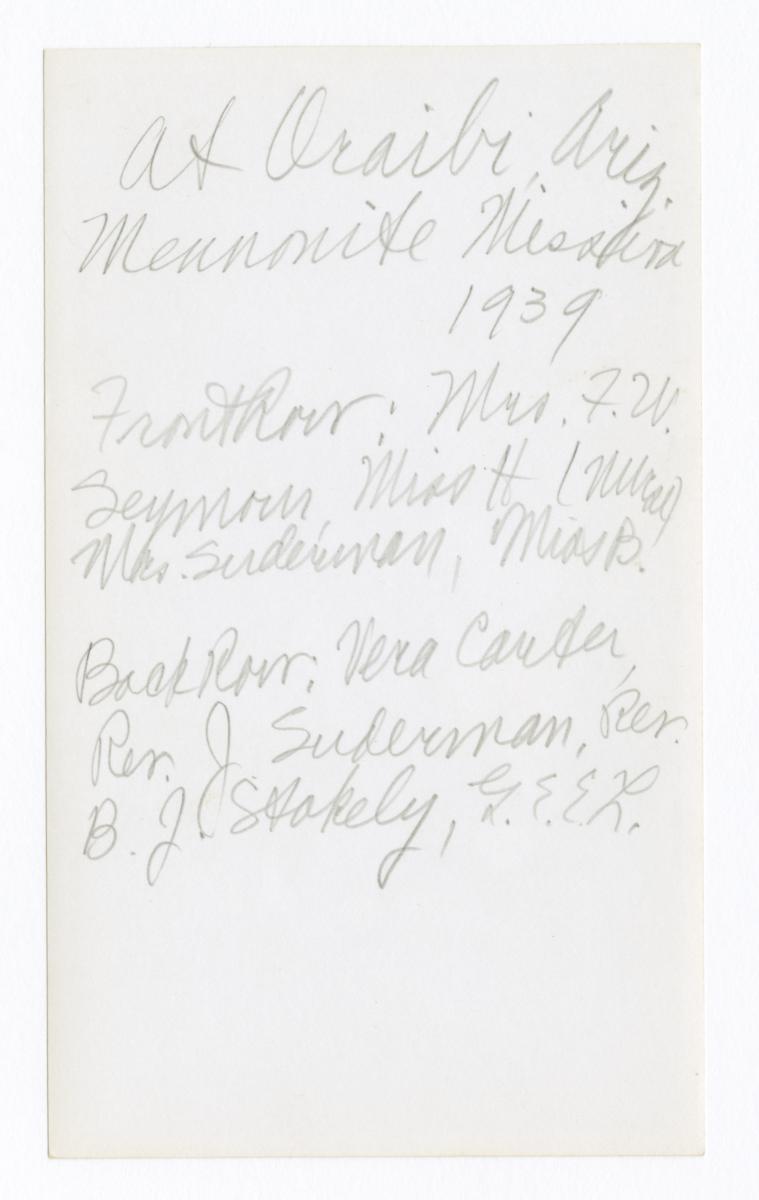 At Oraibi, Ariz.
Mennonite Mission
1939
Front Row: Mrs. F.W.
Seymour, Miss H (Nurse)
Mrs. Suderman, Miss B.
Back Row: Vera Carter,
Rev. J. Suderman, Rev.
B. J. Stokely, G.E.E.L.